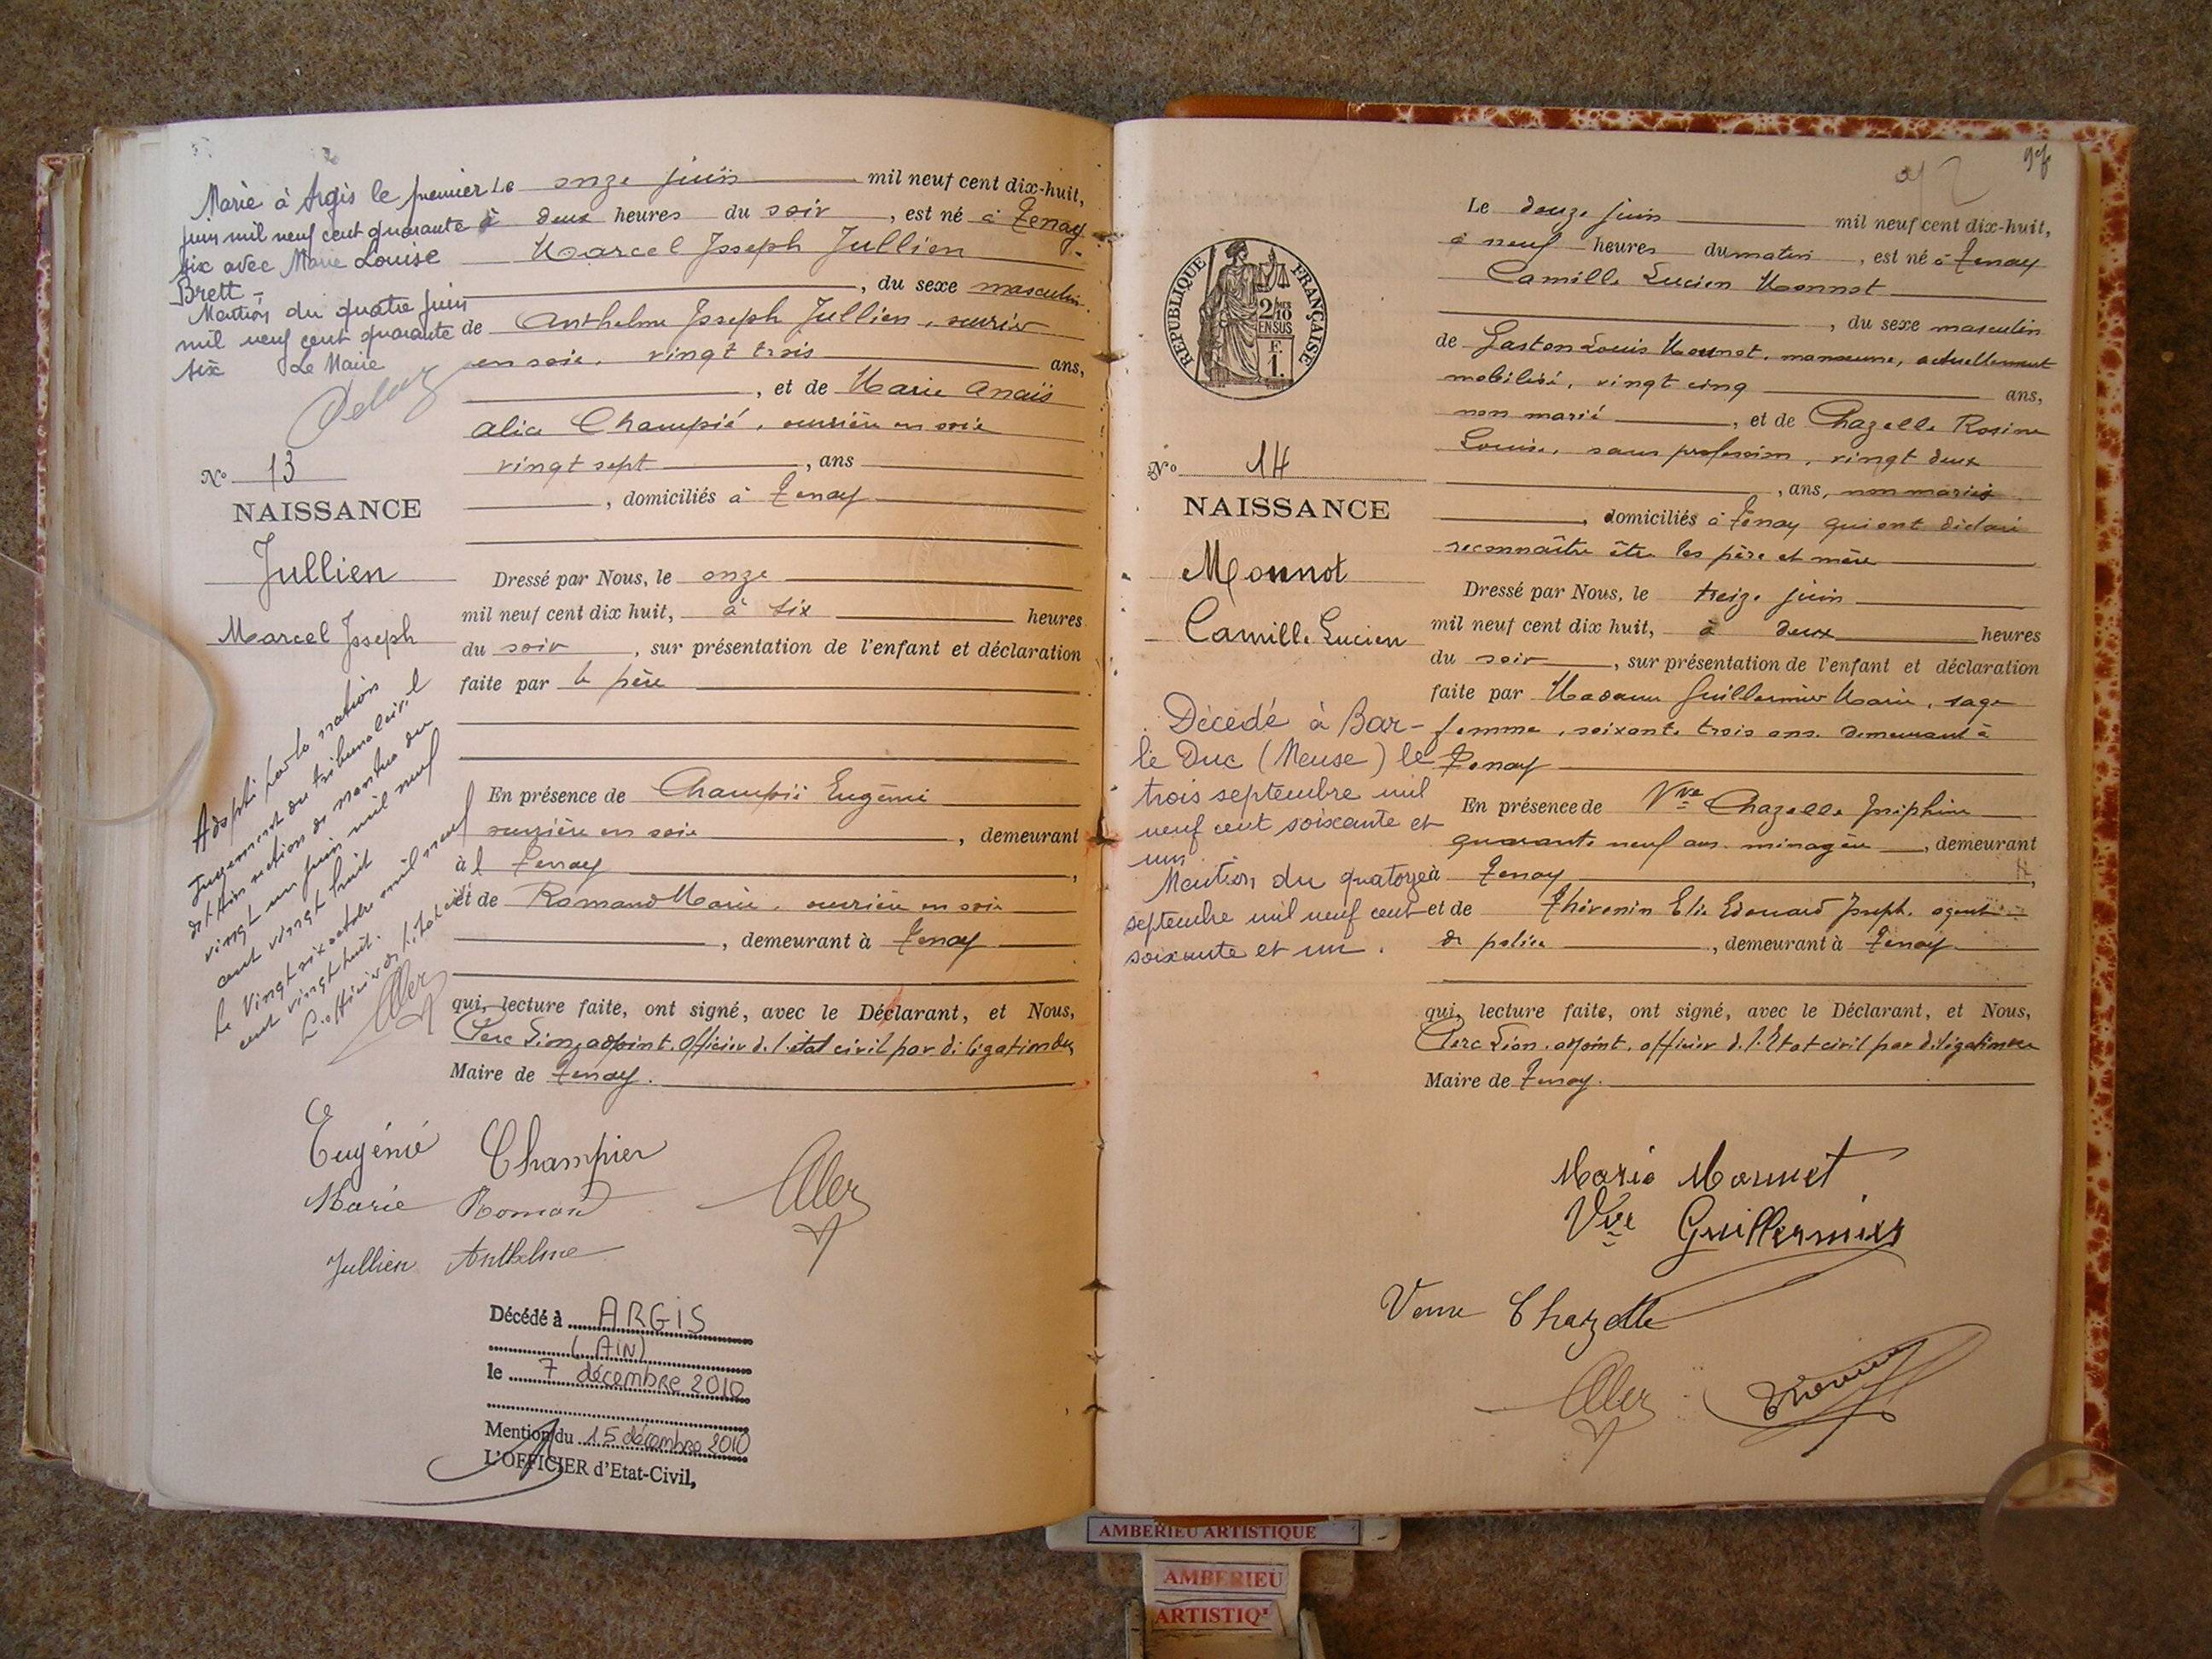 Marié à Argis le premier
juin mil neuf cent quarante
six avec Marie Louise
Brett -
Mention du quatre juin
mil neuf cent quarante
six Le Maire
N° 13
NAISSANCE
Jullien
Marcel Joseph
Adopté par la nation
Jugement du tribunal civil
section de Nantua du
vingt un juin mil neuf
cent vingt huit
Le vingt six octobre mil neuf
cent vingt huit.
L'officier de l'état civil
Le onze juin mil neuf cent dix-huit,
à deux heures du soir, est né à Tenay
Marcel Joseph Jullien
, du sexe masculin
de Anthelme Joseph Jullien, ouvrier
en soie, vingt trois ans,
, et de Marie Anaïs
Alice Champié, ouvrière en soie
vingt sept, ans
, domiciliés à Tenay
Dressé par Nous, le onze
mil neuf cent dix huit, à six heures
du soir, sur présentation de l'enfant et déclaration
faite par le père
En présence de Champié Eugénie
ouvrière en soie, demeurant
à Tenay,
et de Romand Marie, ouvrière en soie
, demeurant à Tenay
qui, lecture faite, ont signé, avec le Déclarant, et Nous,
Clerc Léon, adjoint, officier de l'état civil par délégation du
Maire de Tenay.
Eugénie Champier
Marie Romand
Jullien Anthelme
Décédé à ARGIS
(AIN)
le 7 décembre 2010
Mention du 15 décembre 2010
L'OFFICIER d'Etat-Civil,
RÉPUBLIQUE FRANÇAISE
2/10
EN SUS
F.
1.
N° 14
NAISSANCE
Monnot
Camille Lucien
Décédé à Bar-
le Duc (Meuse) le
trois septembre mil
neuf cent soixante et
un.
Mention du quatorze
septembre mil neuf cent
soixante et un.
Le douze juin mil neuf cent dix-huit,
à neuf heures du matin, est né à Tenay
Camille Lucien Monnot
, du sexe masculin
de Gaston Louis Monnot, manœuvre, actuellement
mobilisé, vingt cinq ans,
non marié, et de Chazelle Rosine
Louise, sans profession, vingt deux
, ans, non mariés
, domiciliés à Tenay qui ont déclaré
reconnaître être les père et mère
Dressé par Nous, le treize juin
mil neuf cent dix huit, à deux heures
du soir, sur présentation de l'enfant et déclaration
faite par Madame Guillermier Marie, sage
femme, soixante trois ans demeurant à
Tenay
En présence de Vve Chazelle Joséphine
quarante neuf ans ménagère, demeurant
à Tenay,
et de Thévenin Elie Edouard Joseph, agent
de police, demeurant à Tenay
qui, lecture faite, ont signé, avec le Déclarant, et Nous,
Clerc Léon, adjoint, officier de l'Etat civil par délégation du
Maire de Tenay.
Marie Monnet
Vve Guillermier
Veuve Chazelle
Thévenin
AMBERIEU ARTISTIQUE
AMBERIEU
ARTISTIQ